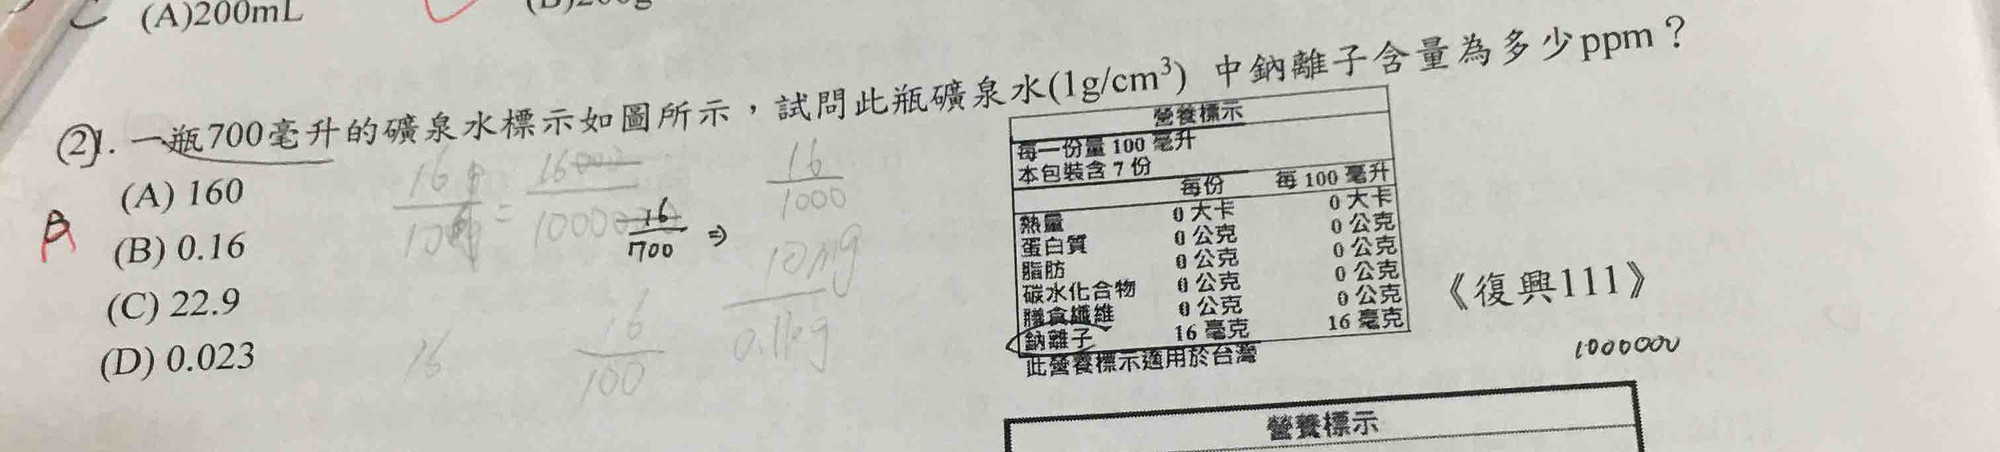 (A)200mL
21. 一瓶700毫升的礦泉水標示如圖所示，試問此瓶礦泉水(1g/cm³) 中鈉離子含量為多少ppm？
(A) 160
(B) 0.16
(C) 22.9
(D) 0.023
B
16/700 ⇒
16/1000
10mg/0.1kg
16/100
16
營養標示
每一份量 100 毫升
本包裝含 7 份
每份 每 100 毫升
熱量 0 大卡 0 大卡
蛋白質 0 公克 0 公克
脂肪 0 公克 0 公克
碳水化合物 0 公克 0 公克
膳食纖維 0 公克 0 公克
鈉離子 16 毫克 16 毫克
此營養標示適用於台灣
《復興111》
1000000
營養標示